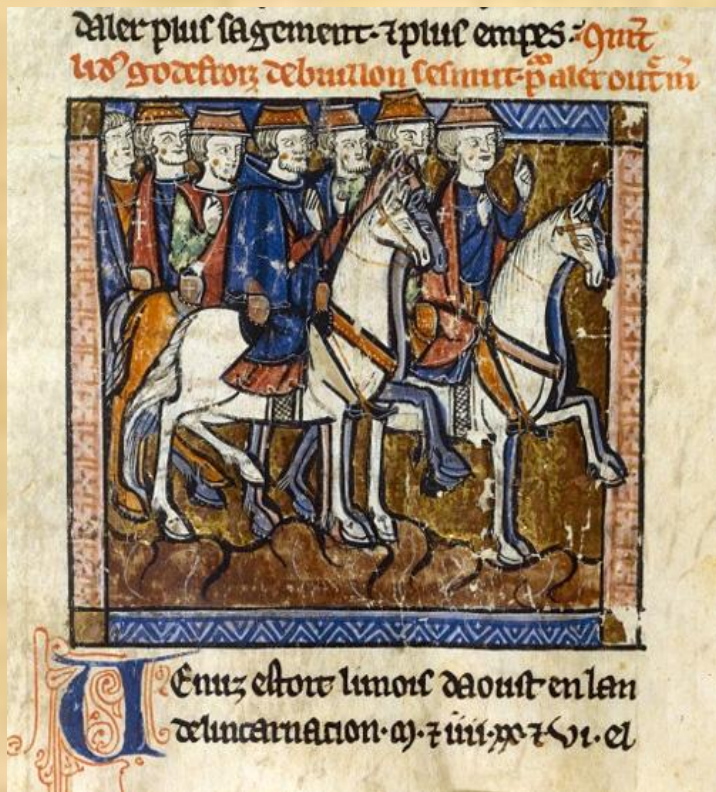 daler plus sagement· ⁊ plus empes· Qnt̃
li dᵒ godefroiz debuillon sesmut· pᵃ aler outˀ m̃
Uenuz estoit limois daoust en lan
delincarnacion· m· ⁊ iiii· xx· ⁊ vi· el